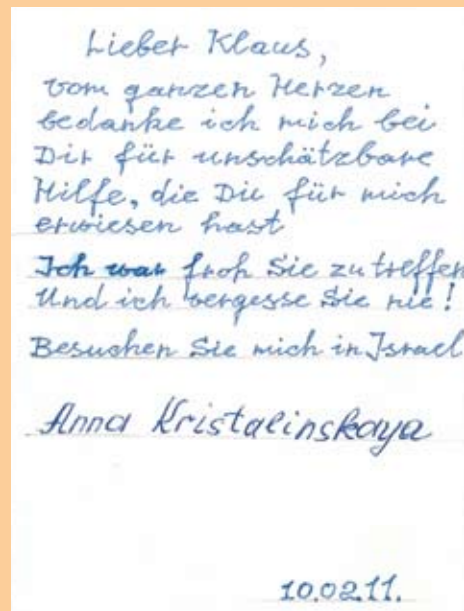 Lieber Klaus,
vom ganzen Herzen
bedanke ich mich bei
Dir für unschätzbare
Hilfe, die Du für mich
erwiesen hast
Ich war froh Sie zu treffen
Und ich vergesse Sie nie!
Besuchen Sie mich in Israel
Anna Kristalinskaya
10.02.11.